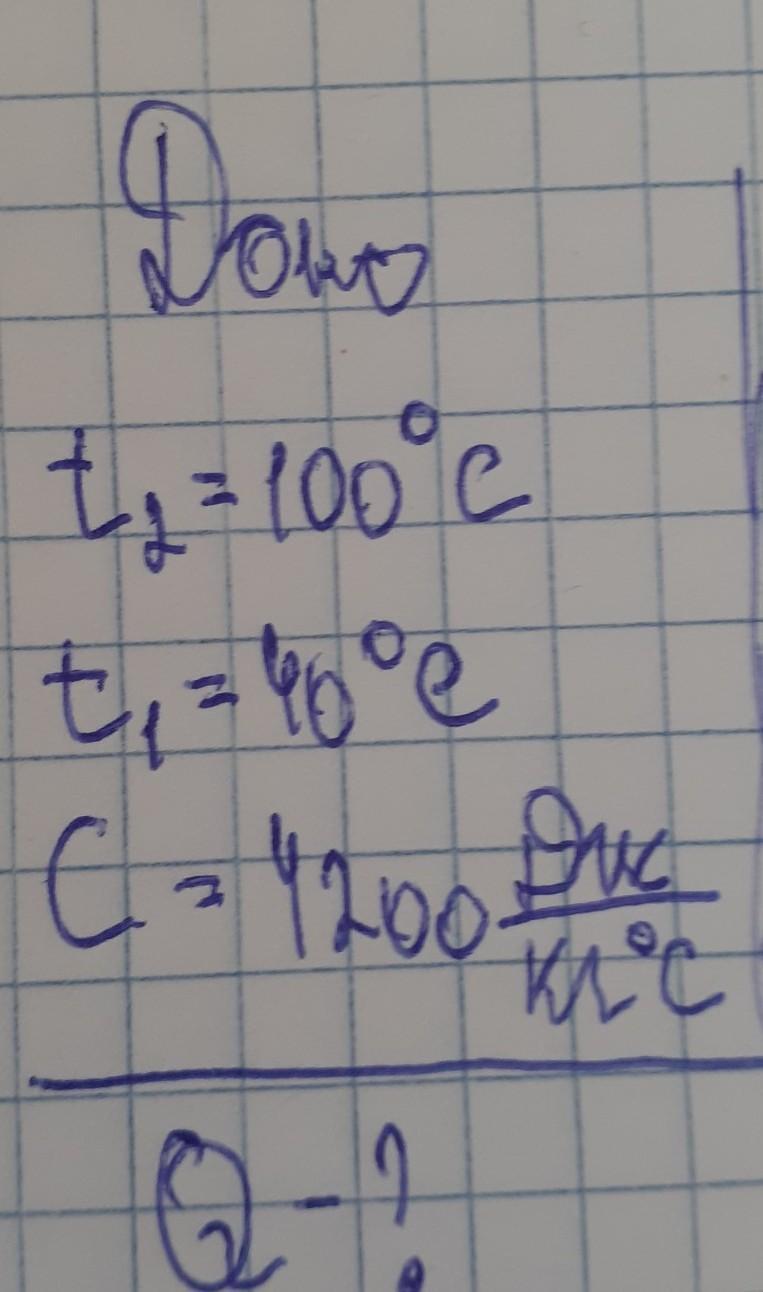 Дано
t₂ = 100°C
t₁ = 40°C
C = 4200 Дж/кг°C
Q - ?